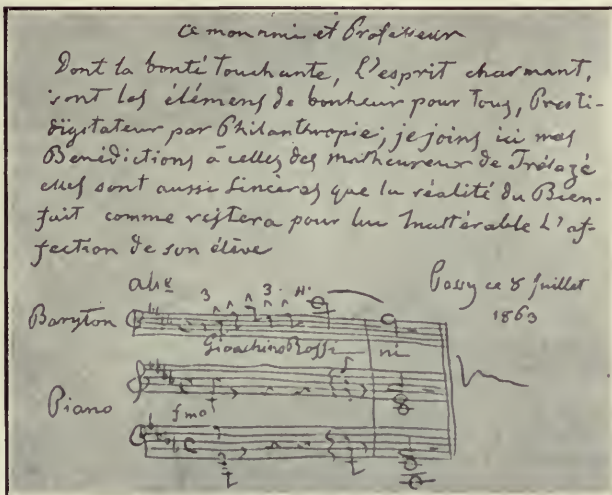 a mon ami et Professeur
Dont la bonté touchante, L'esprit charmant,
sont les élémens de bonheur pour tous, Presti-
digitateur par Philanthropie; je joins ici mes
Bénédictions à celles des malheureux de Trélazé
elles sont aussi sincères que la réalité du Bien-
fait comme restera pour lui Inaltérable L'af-
fection de son élève
Passy ce 8 Juillet
1863
3 3
Baryton
Gioachino Rossi ni
Piano